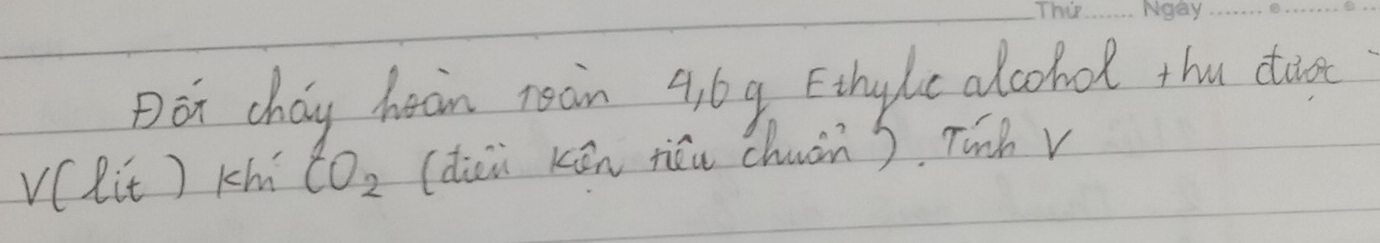 Thứ....... Ngày.......
Đốt cháy hoàn toàn 4,6g Ethylic alcohol thu được
V(lít) khí CO₂ (điều kện tiêu chuẩn). Tính V